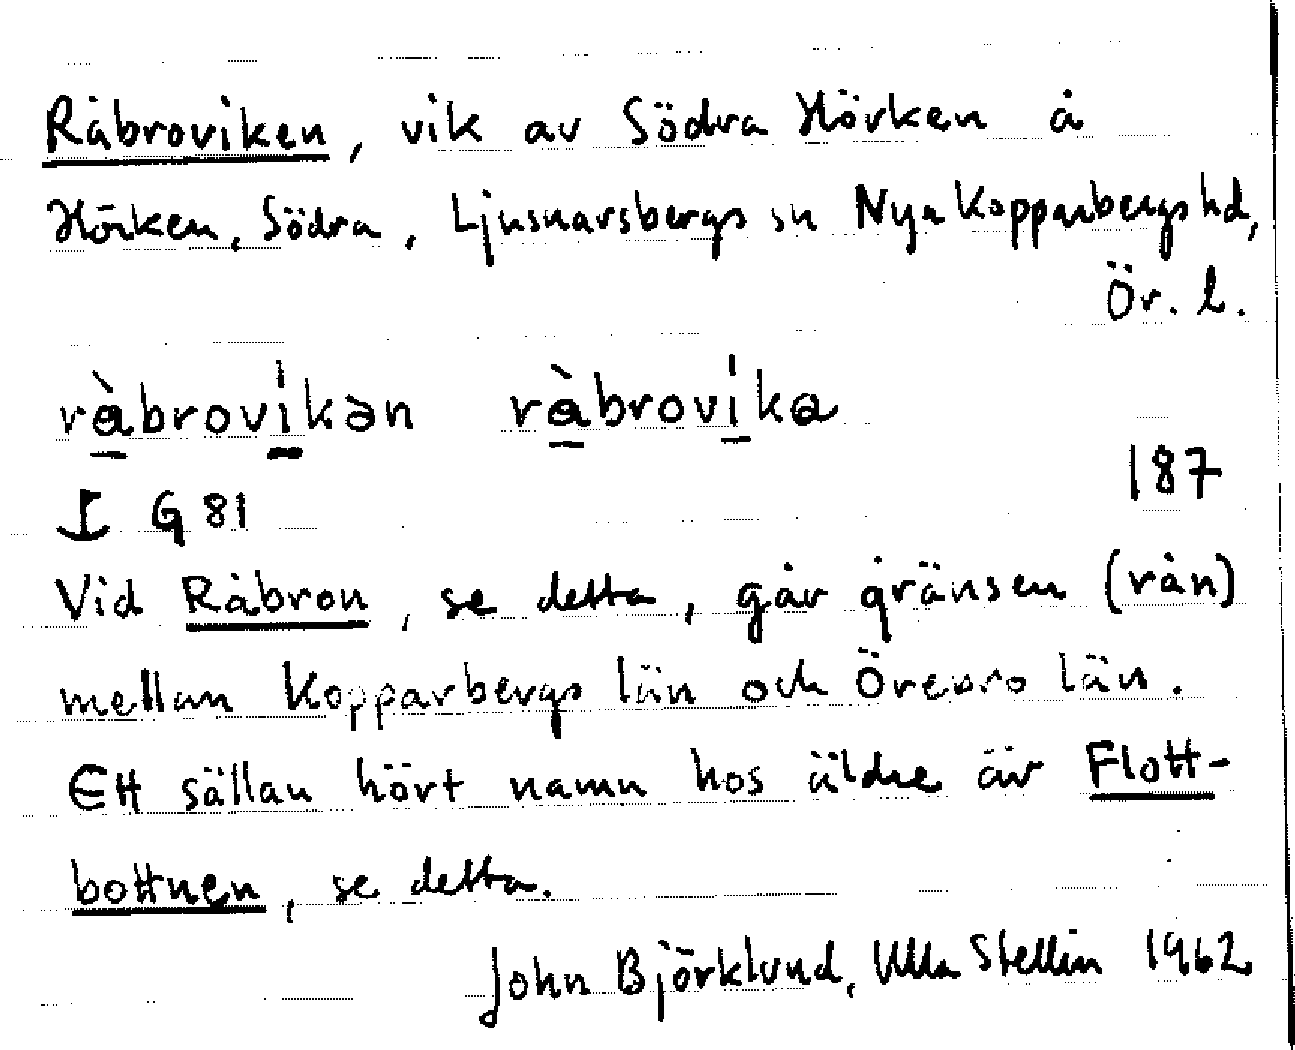 Råbroviken, vik av Södra Hörken å
Hörken, Södra, Ljusnarsbergs sn Nya Kopparbergs hd,
Ör. l.
rå̀brovi̍kən rå̀brovi̍ka
187
G 81
Vid Råbron, se detta, går gränsen (rån)
mellan Kopparbergs län och Örebro län.
Ett sällan hört namn hos äldre är Flott-
bottnen, se detta.
John Björklund, Ulla Stellin 1962